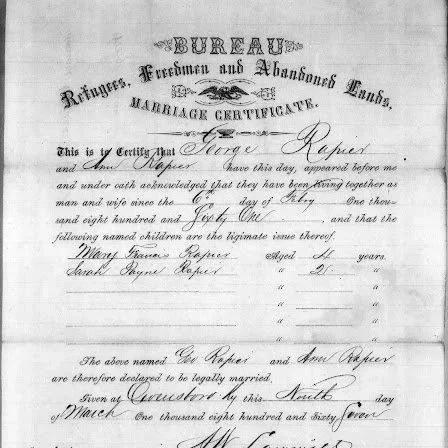 BUREAU
Refugees, Freedmen and Abandoned Lands,
MARRIAGE CERTIFICATE.
This is to Certify that George Rapier
and Ann Rapier have this day, appeared before me
and under oath acknowledged that they have been living together as
man and wife since the 6" day of Feby One thou-
sand eight hundred and Sixty One, and that the
following named children are the ligimate issue thereof.
Mary Francis Rapier Aged 4 years.
Sarah Payne Rapier " 2 "
" "
" "
" "
The above named Geo Rapier and Ann Rapier
are therefore declared to be legally married,
Given at Owensboro Ky this Ninth day
of March One thousand eight hundred and Sixty Seven